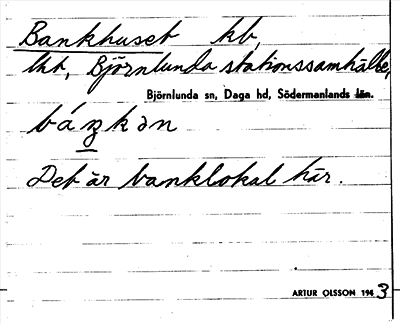 Bankhuset kb,
lht, Björnlunda stationssamhälle,
Björnlunda sn, Daga hd, Södermanlands län.
báŋkən
Det är banklokal här.
ARTUR OLSSON 1943